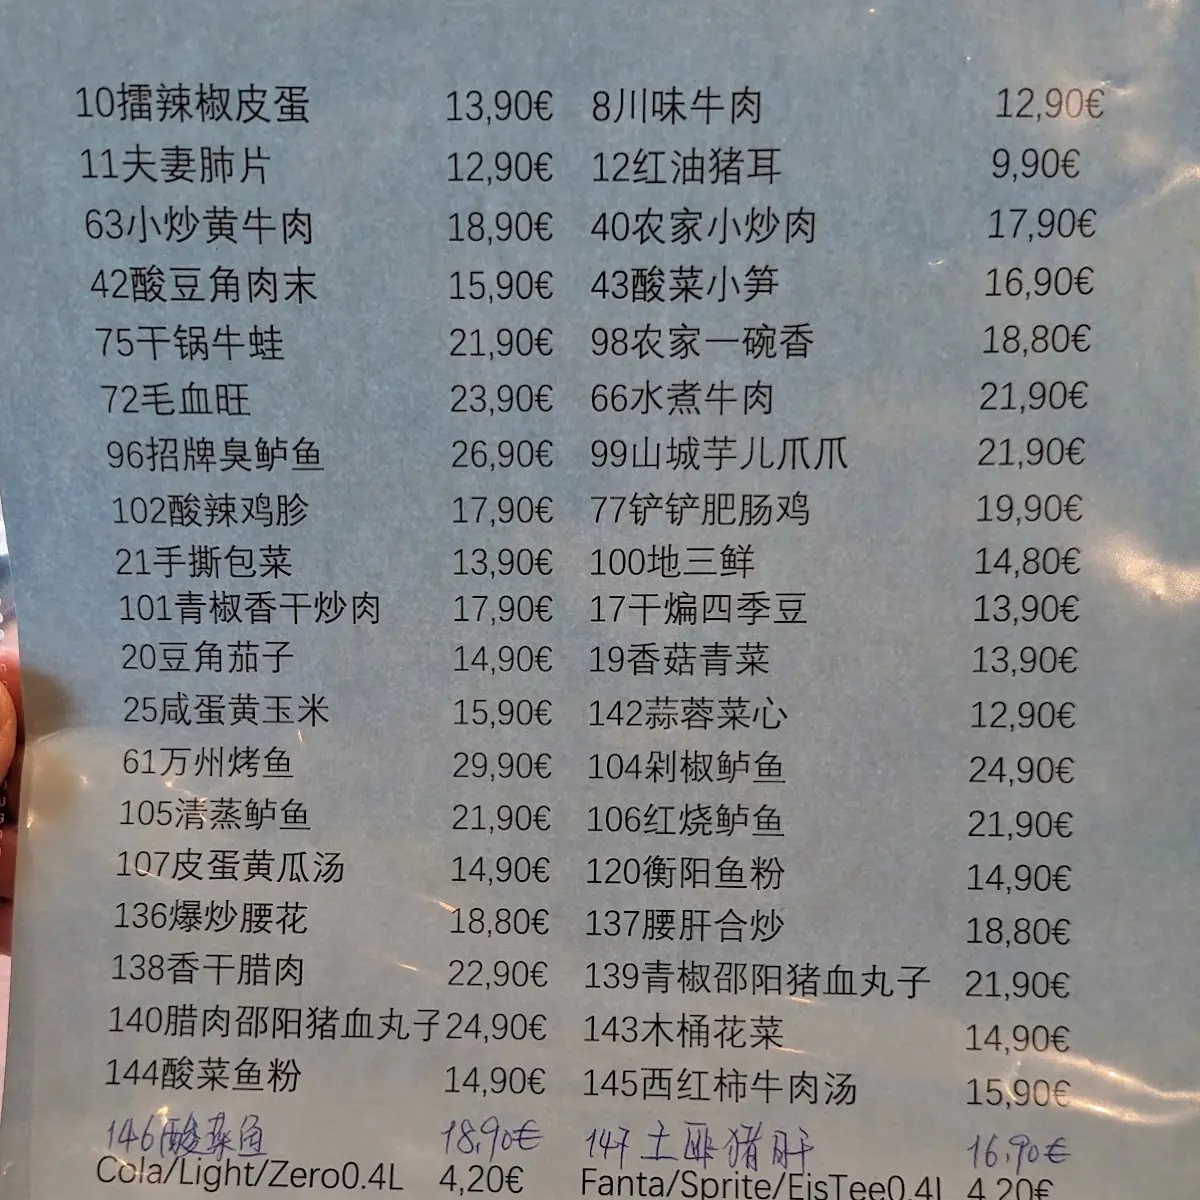 10擂辣椒皮蛋 13,90€ 8川味牛肉 12,90€
11夫妻肺片 12,90€ 12红油猪耳 9,90€
63小炒黄牛肉 18,90€ 40农家小炒肉 17,90€
42酸豆角肉末 15,90€ 43酸菜小笋 16,90€
75干锅牛蛙 21,90€ 98农家一碗香 18,80€
72毛血旺 23,90€ 66水煮牛肉 21,90€
96招牌臭鲈鱼 26,90€ 99山城芋儿爪爪 21,90€
102酸辣鸡胗 17,90€ 77铲铲肥肠鸡 19,90€
21手撕包菜 13,90€ 100地三鲜 14,80€
101青椒香干炒肉 17,90€ 17干煸四季豆 13,90€
20豆角茄子 14,90€ 19香菇青菜 13,90€
25咸蛋黄玉米 15,90€ 142蒜蓉菜心 12,90€
61万州烤鱼 29,90€ 104剁椒鲈鱼 24,90€
105清蒸鲈鱼 21,90€ 106红烧鲈鱼 21,90€
107皮蛋黄瓜汤 14,90€ 120衡阳鱼粉 14,90€
136爆炒腰花 18,80€ 137腰肝合炒 18,80€
138香干腊肉 22,90€ 139青椒邵阳猪血丸子 21,90€
140腊肉邵阳猪血丸子 24,90€ 143木桶花菜 14,90€
144酸菜鱼粉 14,90€ 145西红柿牛肉汤 15,90€
146酸菜鱼 18,90€ 147土匪猪肝 16,90€
Cola/Light/Zero0.4L 4,20€ Fanta/Sprite/EisTee0.4L 4,20€